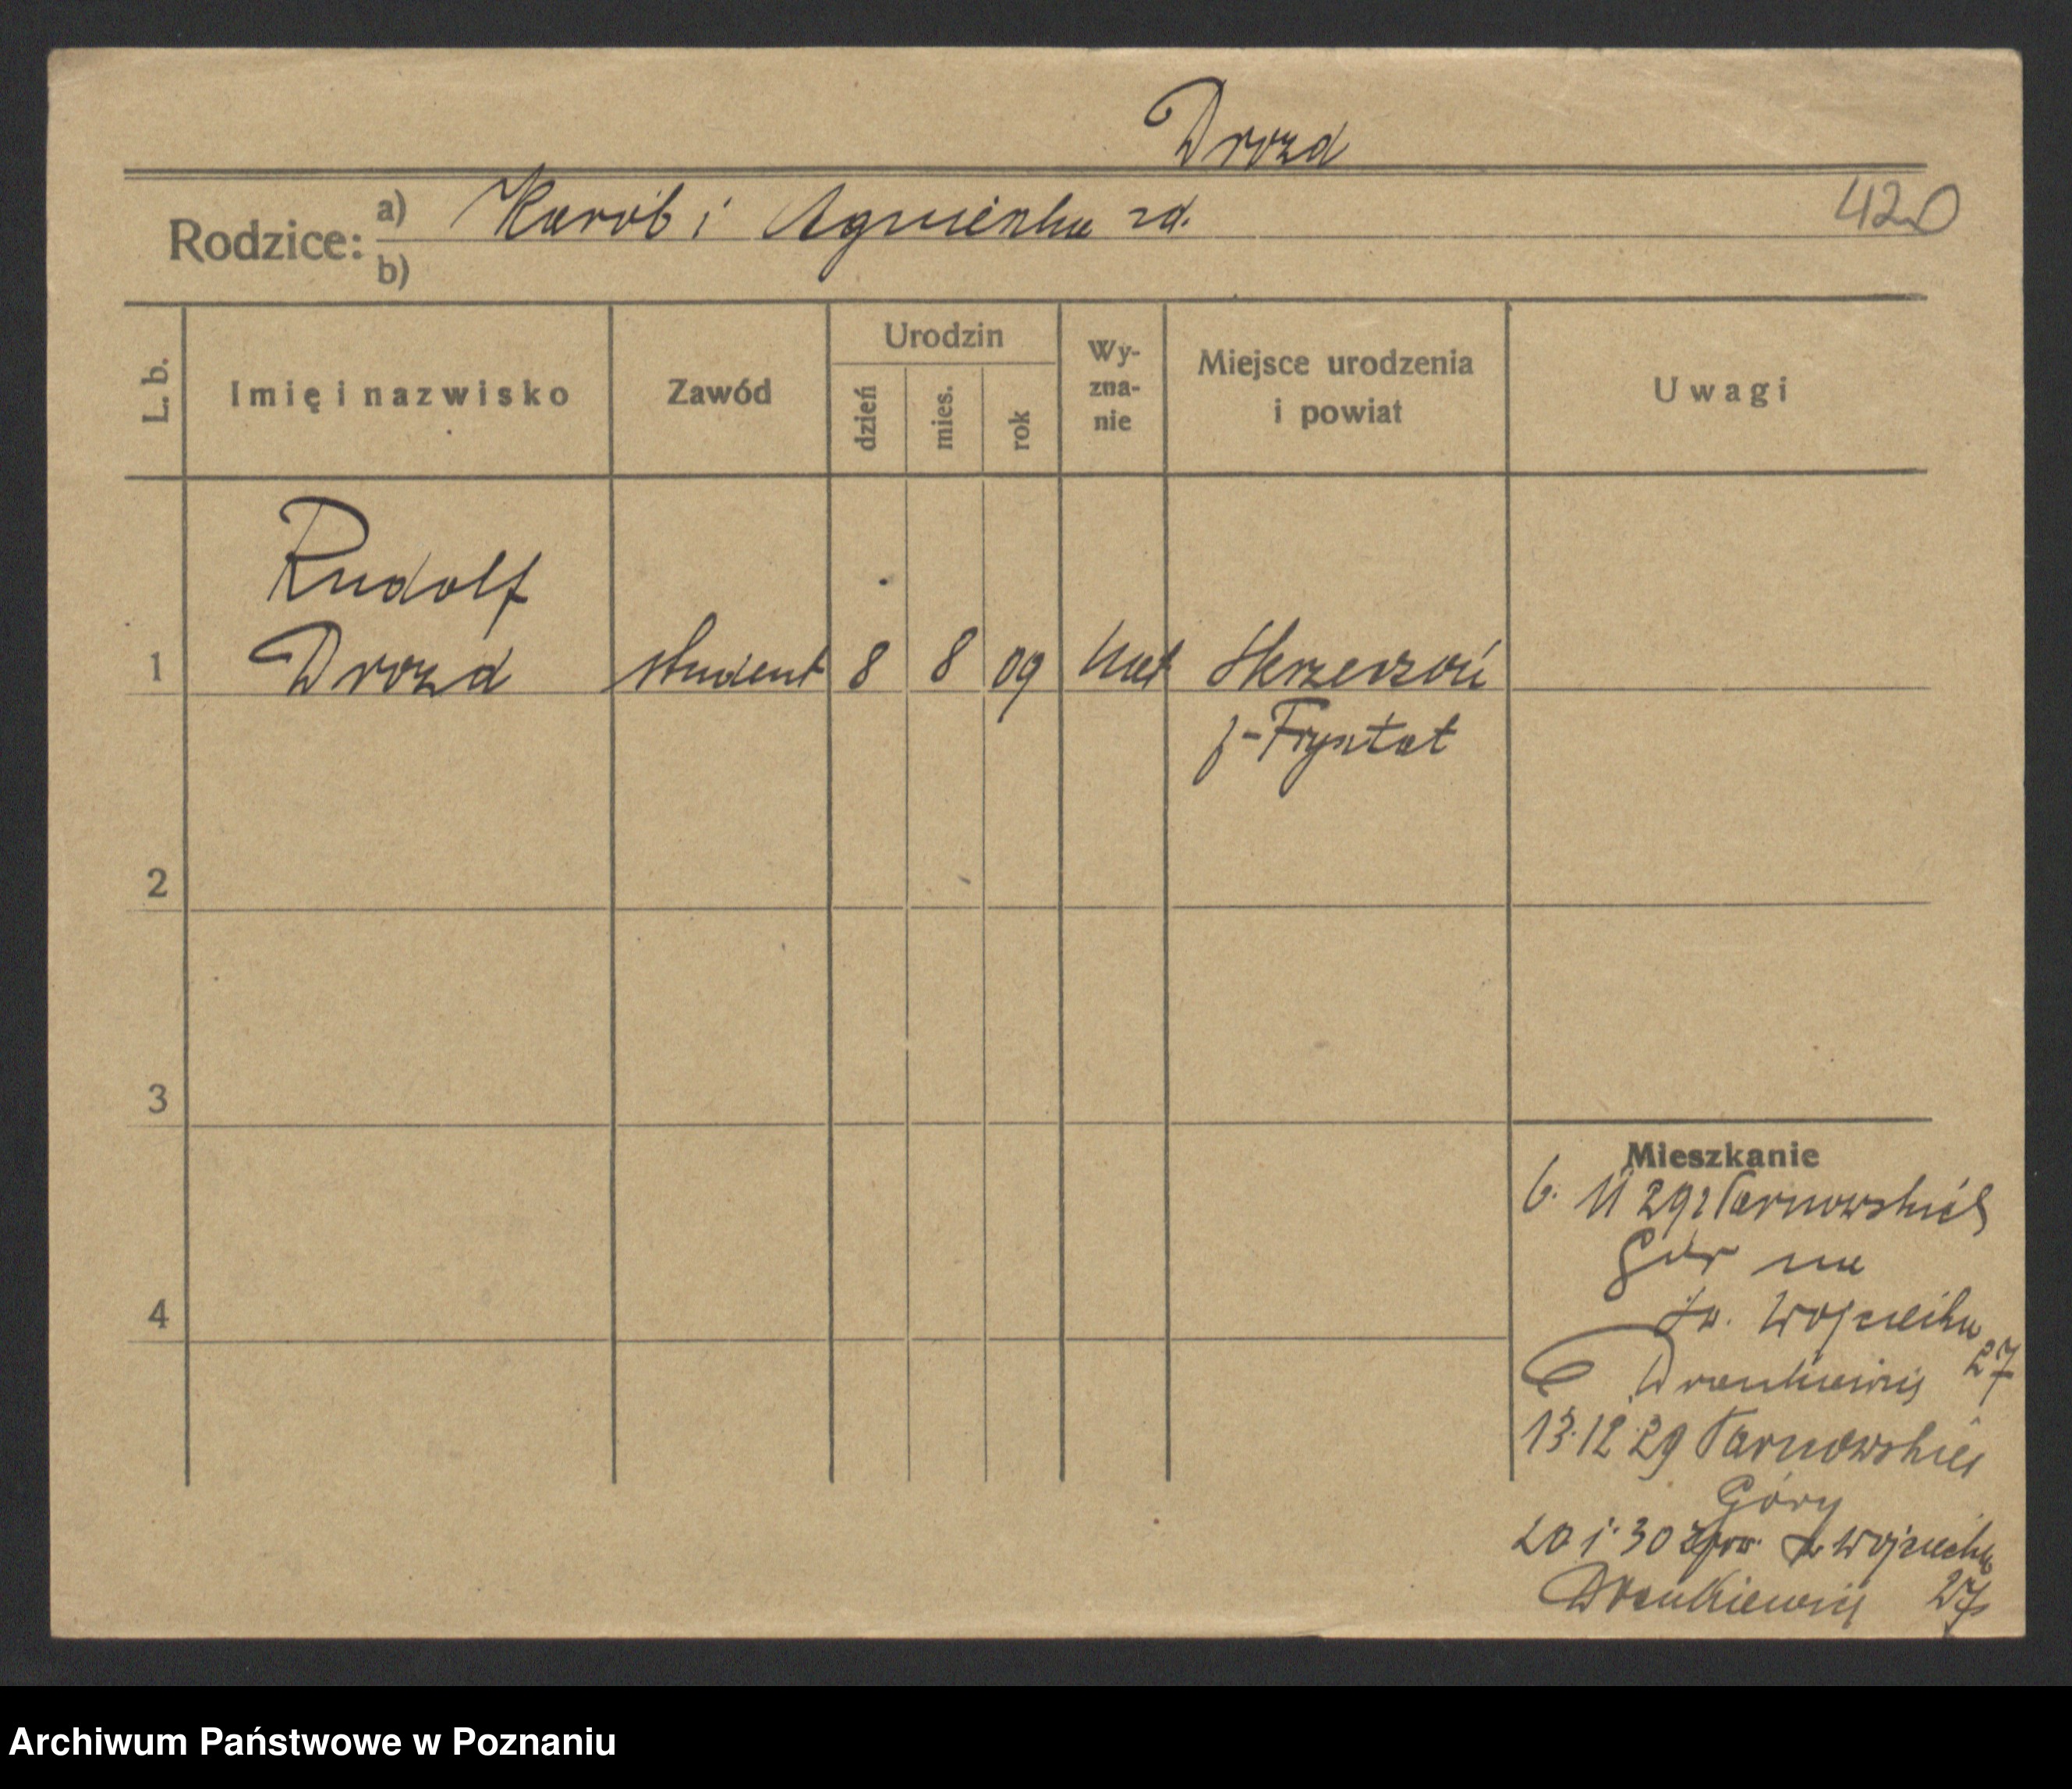 Drozd
Rodzice: a) Karól i Agnieszka zd.
420
b)
L. b.
Imię i nazwisko
Zawód
Urodzin
dzień
mies.
rok
Wy-
zna-
nie
Miejsce urodzenia
i powiat
Uwagi
Rudolf
1 Drozd student 8 8 09 kat Skrzeczoń
p-Frysztat
2
3
4
Mieszkanie
6. 11 29 z Tarnowskich
Gór na
św. Wojciecha 27
13.12.29 Tarnowskie
Góry
20 1.30 zpow. św Wojciecha
27
Archiwum Państwowe w Poznaniu